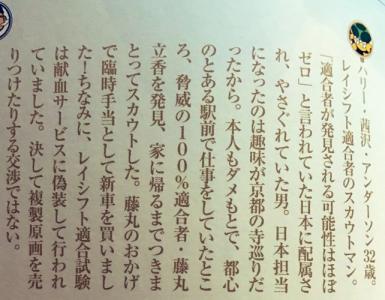 ハリー茜沢・アンダーソン32歳。
レイシフト適合者のスカウトマン。
「適合者が発見される可能性はほぼ
ゼロ」と言われていた日本に配属さ
れ、やさぐれていた男。日本担当
になったのは趣味が京都の寺巡りだ
ったから。本人もダメもとで、都心
のとある駅前で仕事をしていたとこ
ろ、脅威の100%適合者・藤丸
立香を発見、家に帰るまでつきま
とってスカウトした。藤丸のおかげ
で臨時手当として新車を買いまし
た！ちなみに、レイシフト適合試験
は献血サービスに偽装して行われ
ていました。決して複製原画を売
りつけたりする交渉ではない。